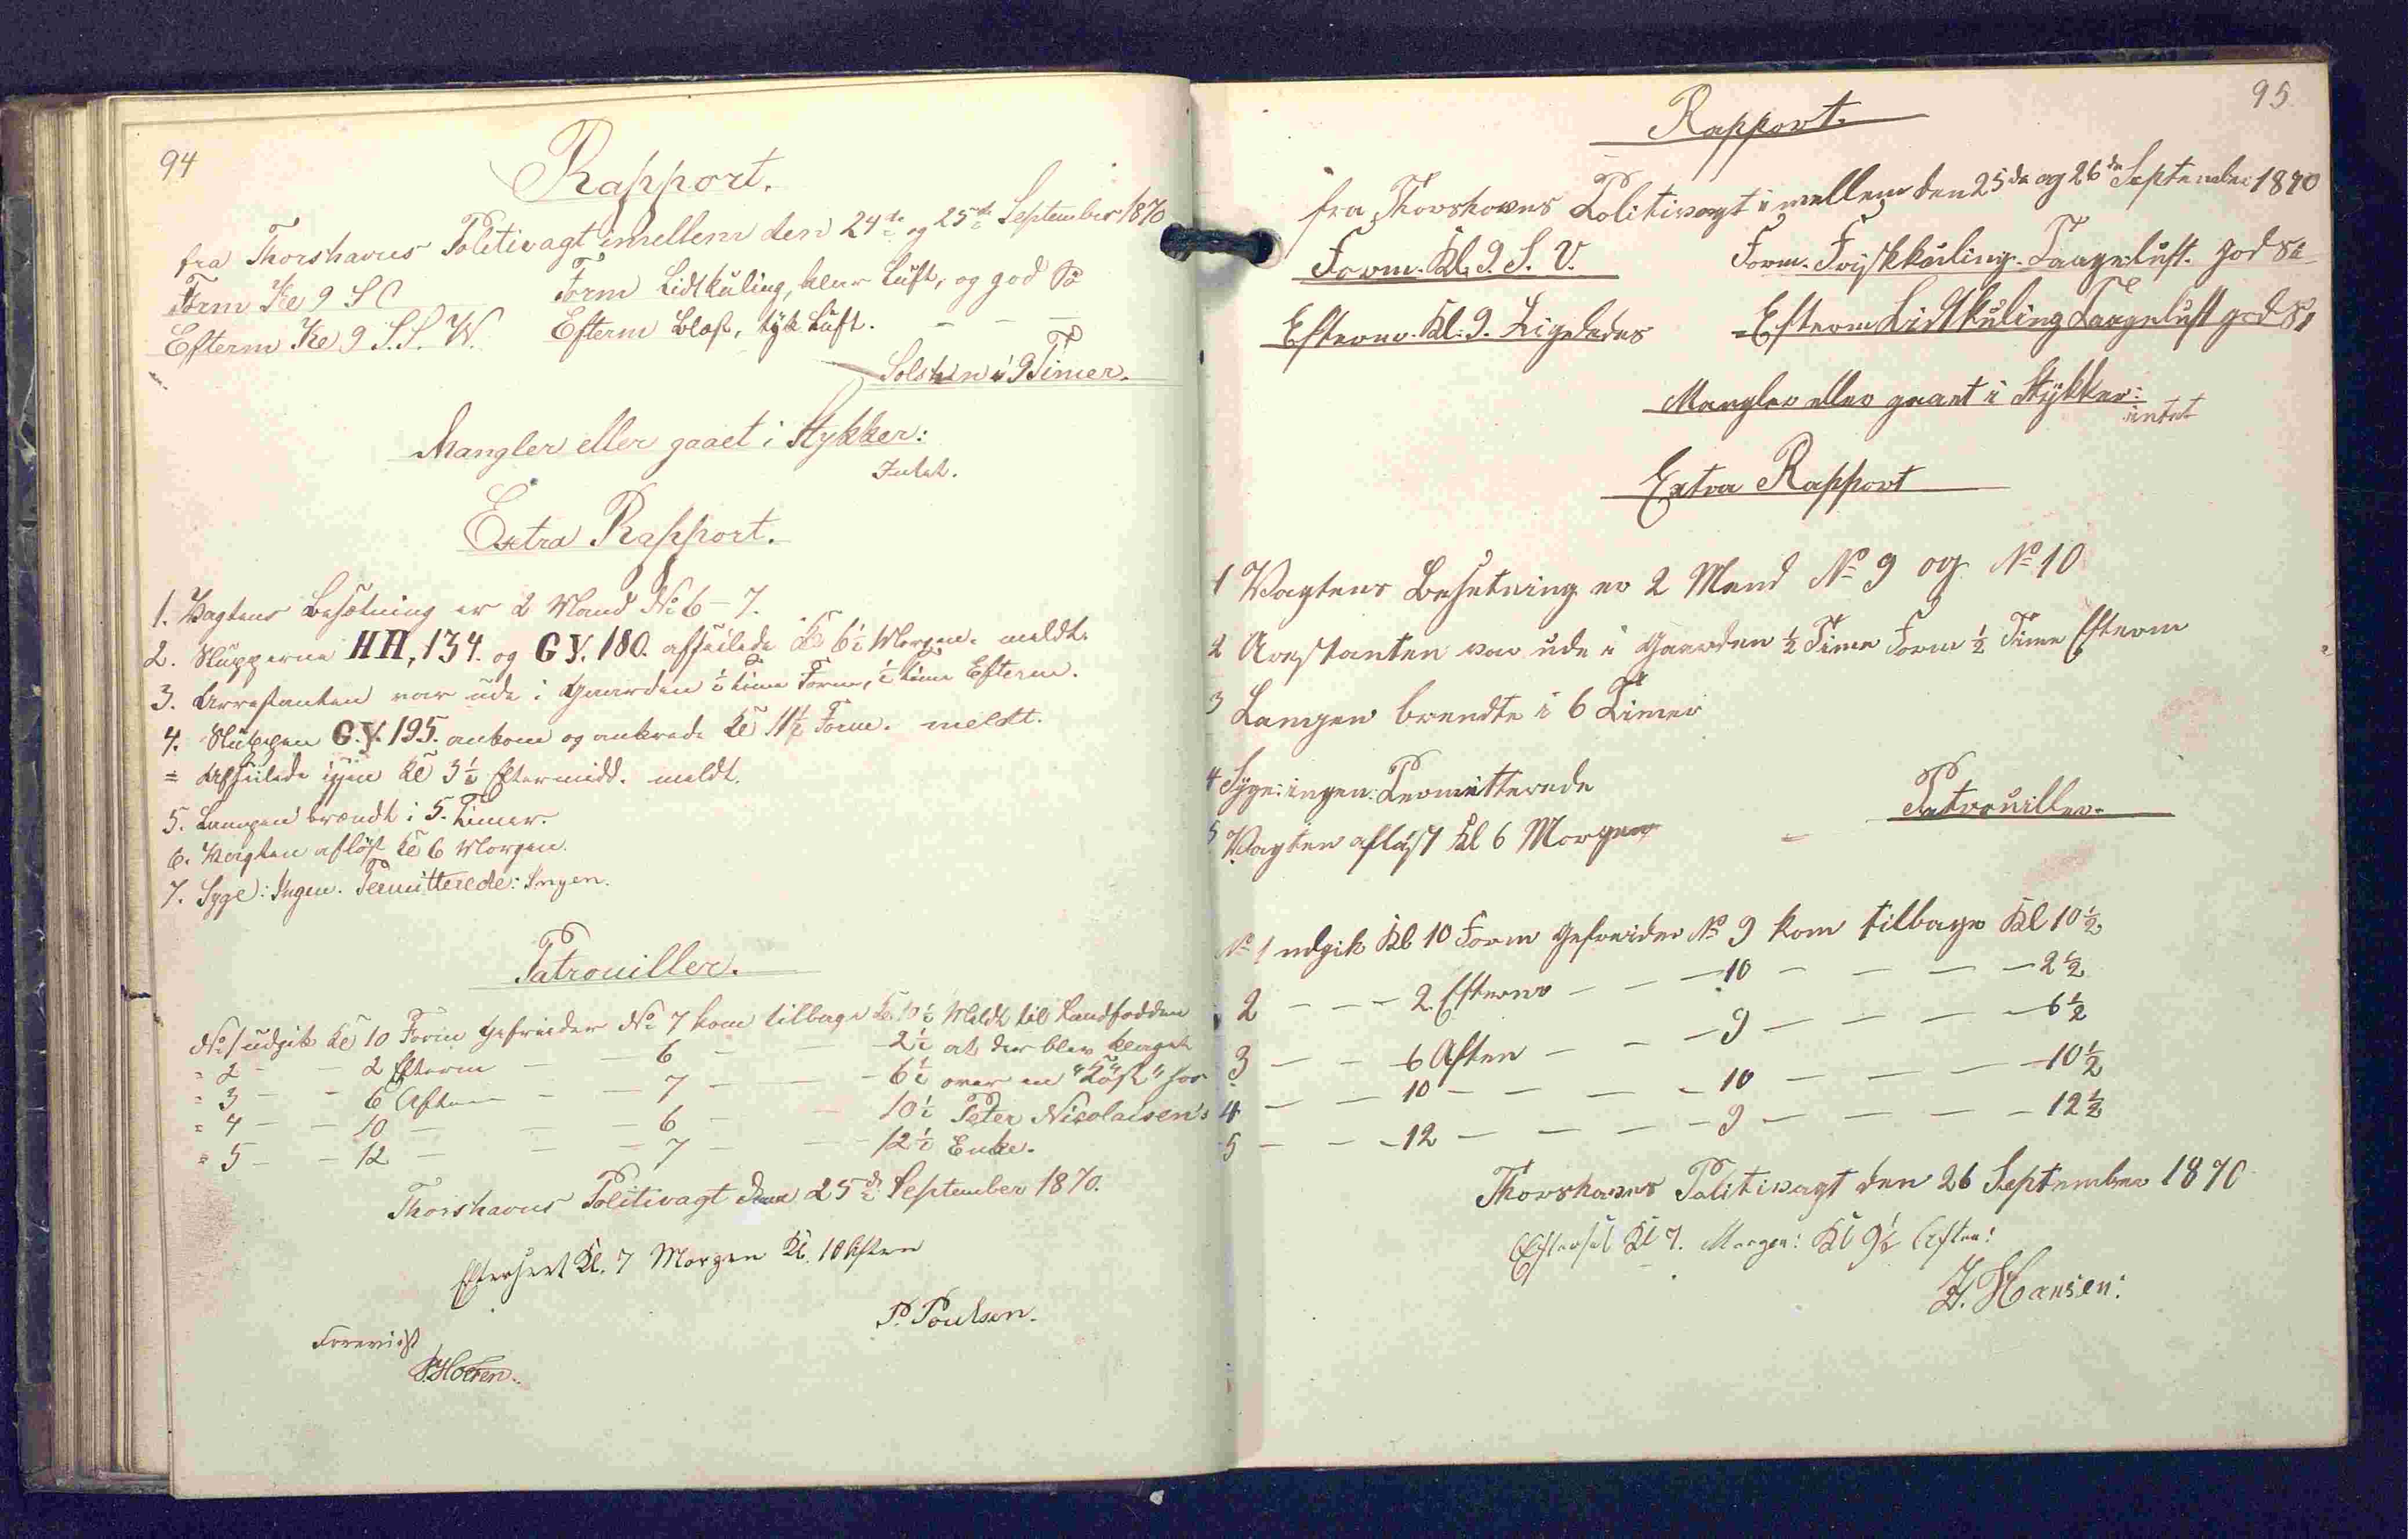 94
Rapport.
fra Thorshavns Politivagt imellem den 24de og 25de September 1870
Form Kl 9 S O Form Lidt Kuling, klar Luft, og god Sö
Efterm Kl 9 S.S.W. Efterm Blæst, tyk Luft. – – –
Solskin i 9 Timer.
Mangler eller gaaet i Stykker:
Intet.
Extra Rapport.
1. Vagtens Besætning er 2 Mand No 6 – 7.
2. Slupperne HH, 134. og GY. 180. afseilede Kl 6½ Morgen. meldt.
3. Arrestanten var ude i Gaarden ½ Time Form, ½ Time Efterm.
4. Sluppen G.Y. 195. ankom og ankrede Kl 11½ Form. meldt.
= Afseilede igjen Kl 3½ Eftermidd. meldt.
5. Lampen brændt i 5. Timer.
6. Vagten aflöst Kl 6 Morgen.
7. Syge: Ingen. Permitterede: Ingen.
Patrouiller.
No 1 udgik Kl 10 Form Gefreider No 7 kom tilbage Kl. 10½ Meldt til Landfodden
= 2 – – 2 Efterm – – 6 – – – 2½ at der blev klaget
= 3 – – 6 Aften – – 7 – – – 6½ over en "Köst" hos
= 4 – – 10 – – – 6 – – 10½ Peter Nicolaisen's
= 5 – – 12 – – – 7 – – – 12½ Enke.
Thorshavns Politivagt den 25de September 1870.
Efterseet Kl. 7 Morgen Kl. 10 Aften
P. Poulsen.
Foreviist
95
Rapport.
fra Thorshavns Politivagt imellem den 25de og 26de September 1870
Form. Kl. 9. S. V. Form. Friskkuling. Taageluft. god Sö
Efterm. Kl: 9. Ligeledes = Efterm Lidtkuling Taageluft god Sö
Mangler eller gaaet i Stykker:
intet
Extra Rapport
1 Vagtens Besetning er 2 Mand No 9 og No 10
2 Arestanten var ude i Gaarden ½ Time Form ½ Time Efterm
3 Lampen brendte i 6 Timer
4 Syge: ingen: Permitterede
5 Vagten aflöst Kl 6 Morgen
Patrouiller.
No 1 udgik Kl 10 Form Gefreider No 9 kom tilbage Kl 10½
2 – – – 2 Efterm – – – 10 – – – – 2½
3 – – 6 Aften – – – 9 – – – – 6½
4 – – 10 – – – – 10 – – – – 10½
5 – – – 12 – – – – 9 – – – – 12½
Thorshavns Politivagt den 26 September 1870
Efterset Kl 7. Morgen: Kl 9½ Aften:
J. Hansen: